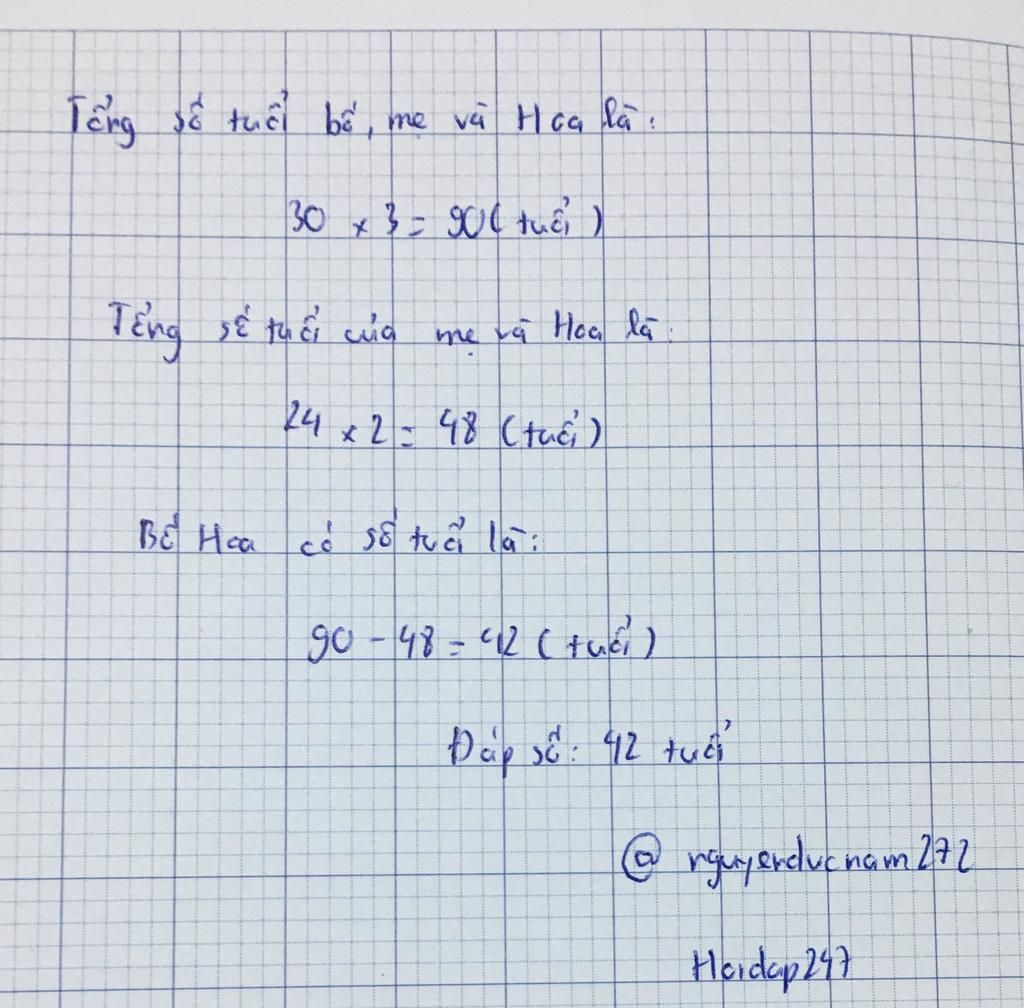 Tổng số tuổi bố, mẹ và Hoa là:
30 x 3 = 90 ( tuổi )
Tổng số tuổi của mẹ và Hoa là:
24 x 2 = 48 ( tuổi )
Bố Hoa có số tuổi là:
90 - 48 = 42 ( tuổi )
Đáp số: 42 tuổi
@ nguyenducnam272
Hoidap247